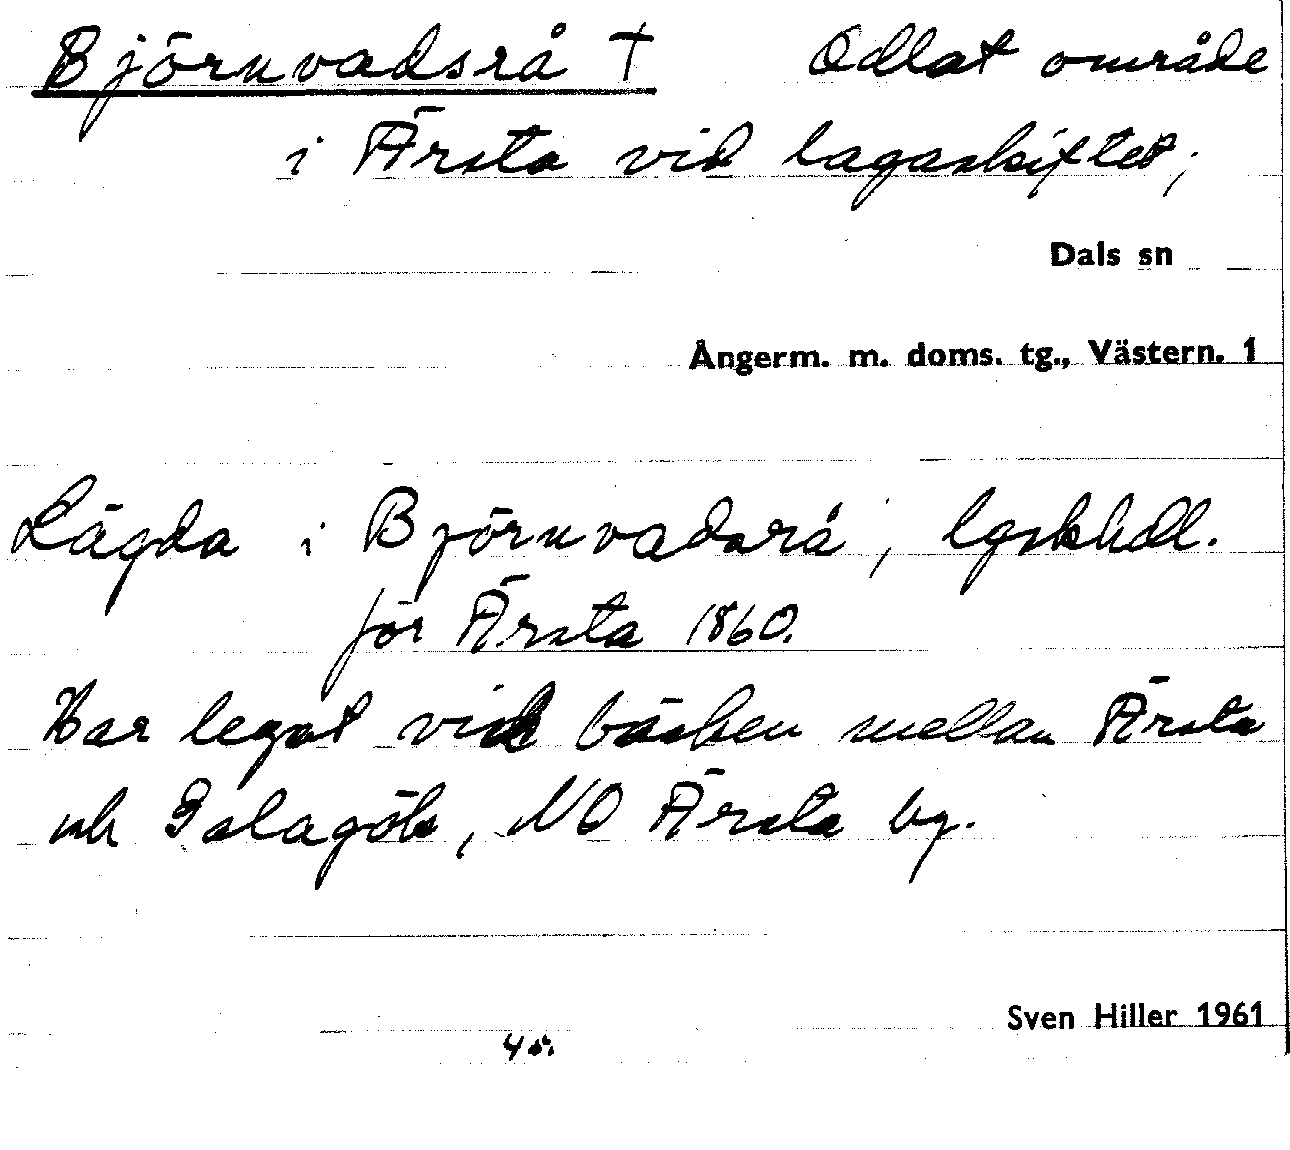 Björnvadsrå † Odlat område
i Ärsta vid lagaskiftet;
Dals sn
Ångerm. m. doms. tg., Västern. 1
Lägda i Björnvadsrå, lgskhdl.
för Ärsta 1860.
Har legat vid bäcken mellan Ärsta
och Galagök, NO Ärsta by.
Sven Hiller 1961